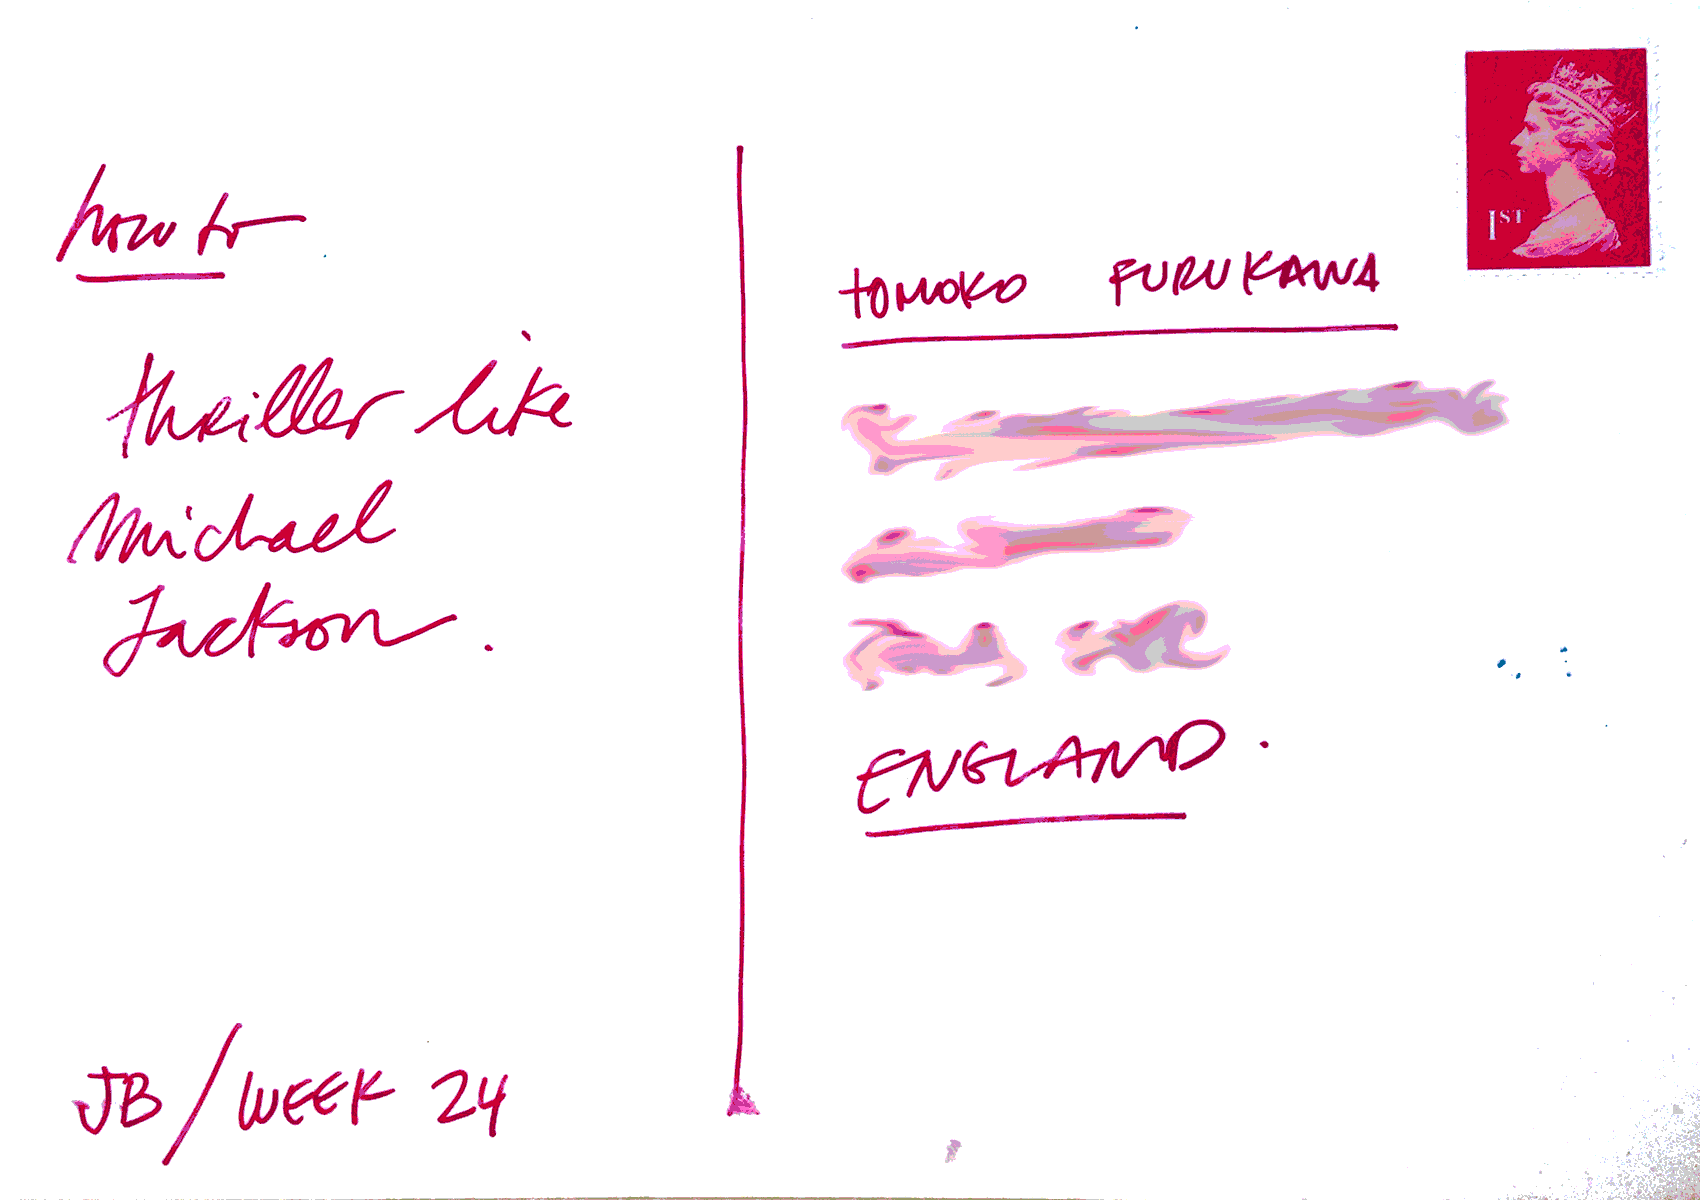 how to
thriller like
Michael
Jackson.
JB/WEEK 24
1ST
TOMOKO FURUKAWA
ENGLAND.